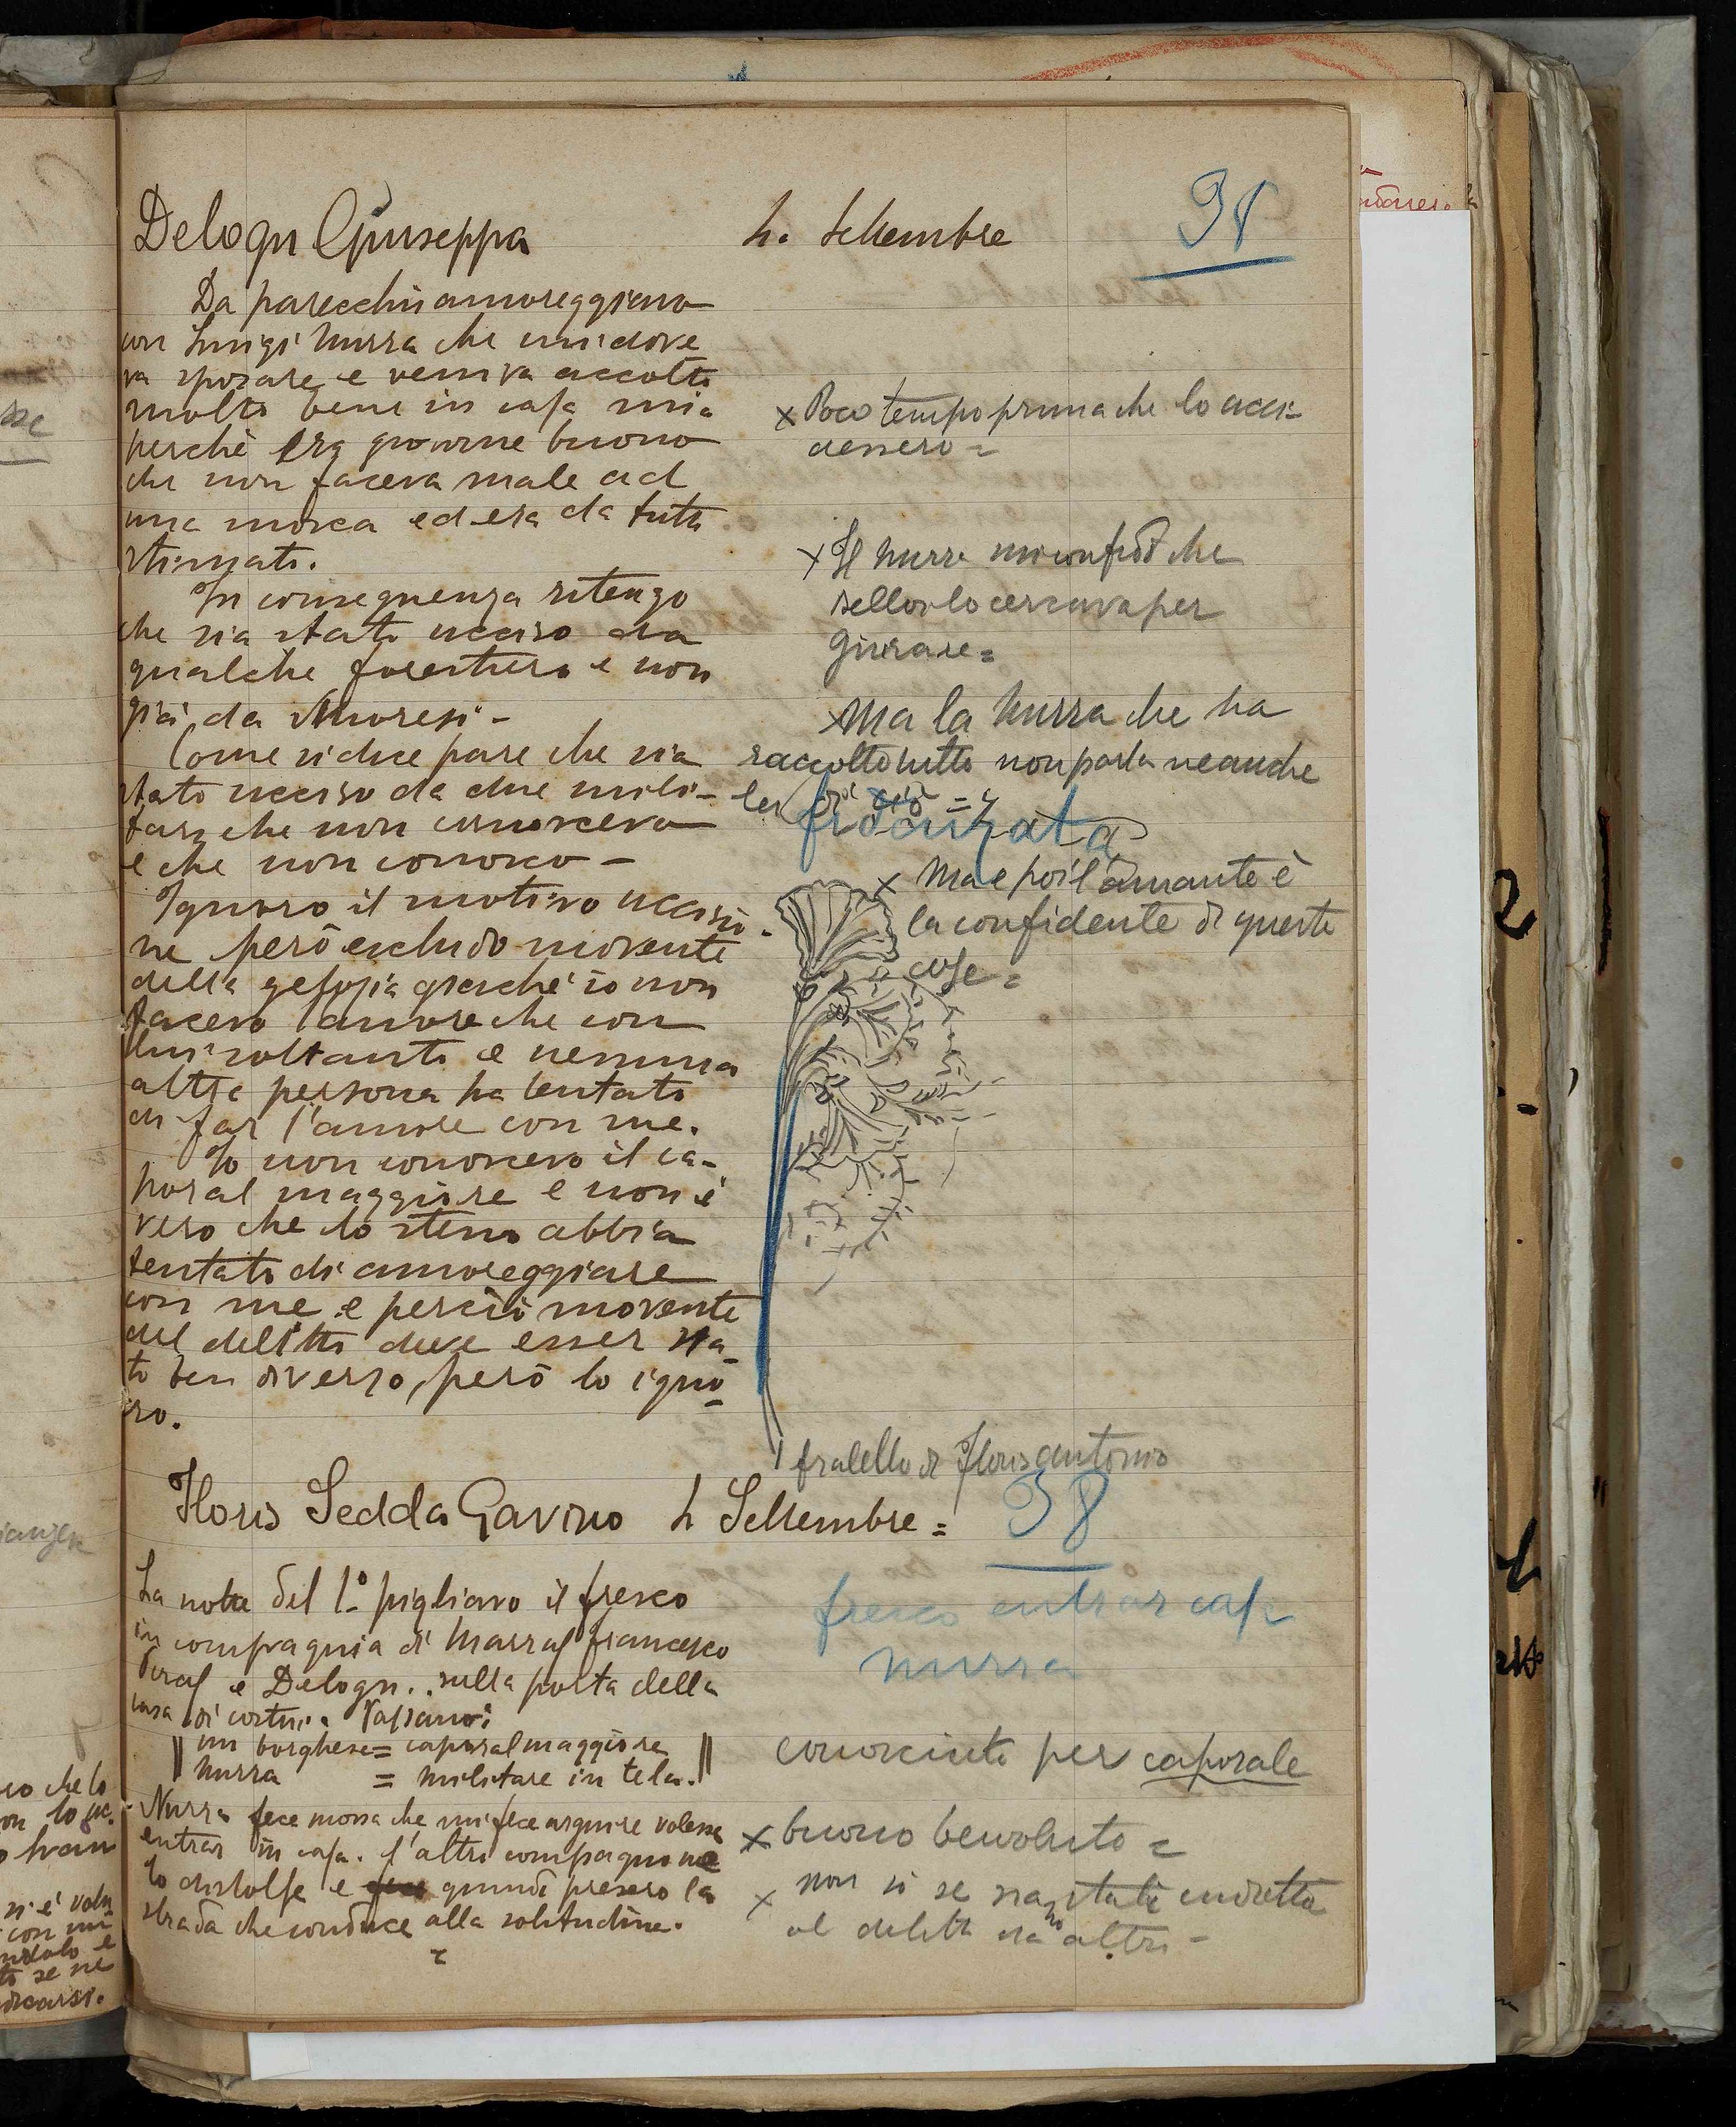 Delogu Giuseppa 4. Settembre 38
Da parecchio amoreggiavo
con Luigi Nurra che mi dove
va sposare e veniva accolto
molto bene in casa mia
perchè era giovane buono
che non faceva male ad
una mosca ed era da tutti
stimato.
In conseguenza ritengo
che sia stato ucciso da
qualche forestiero e non
già da
Come si dice pare che sia
stato ucciso da due mili-
tari che non conoscevo
e che non conosco -
Ignoro il motivo uccisio-
ne però escludo movente
della gelosia giacchè io non
facevo l'amore che con
lui soltanto e nessuna
altra persona ha tentato
di far l'amore con me.
Io non conoscevo il ca-
poral maggiore e non è
vero che lo stesso abbia
tentato di amoreggiare
con me e perciò movente
del delitto deve esser sta-
to ben diverso, però lo igno-
ro.
x Poco tempo prima che lo ucci-
dessero =
x Il Nurra mi confidò che
lo cercava per
giurare =
x Ma la Nurra che ha
raccolto tutto non parla neanche
lei di ciò =
fidanzata
x Ma e poi l'amante è
la confidente di queste
cose =
fratello di Floris Antonio
Floris Sedda Gavino 4 Settembre = 38
La notte del 1º pigliavo il fresco
in compagnia di Marras Francesco
e Delogu.. sulla porta della
casa di costui. Passano:
un borghese = caporal maggiore
Nurra = militare in tela.
Nurra fece mossa che mi fece arguire volesse
entrar in casa. L'altro compagno ne
lo distolse e quindi presero la
strada che conduce alla solitudine.
=
fresco entrar casa
Nurra
conosciuto per caporale
x buono benvoluto =
x non so se sia stato indotto
al delitto da altri -